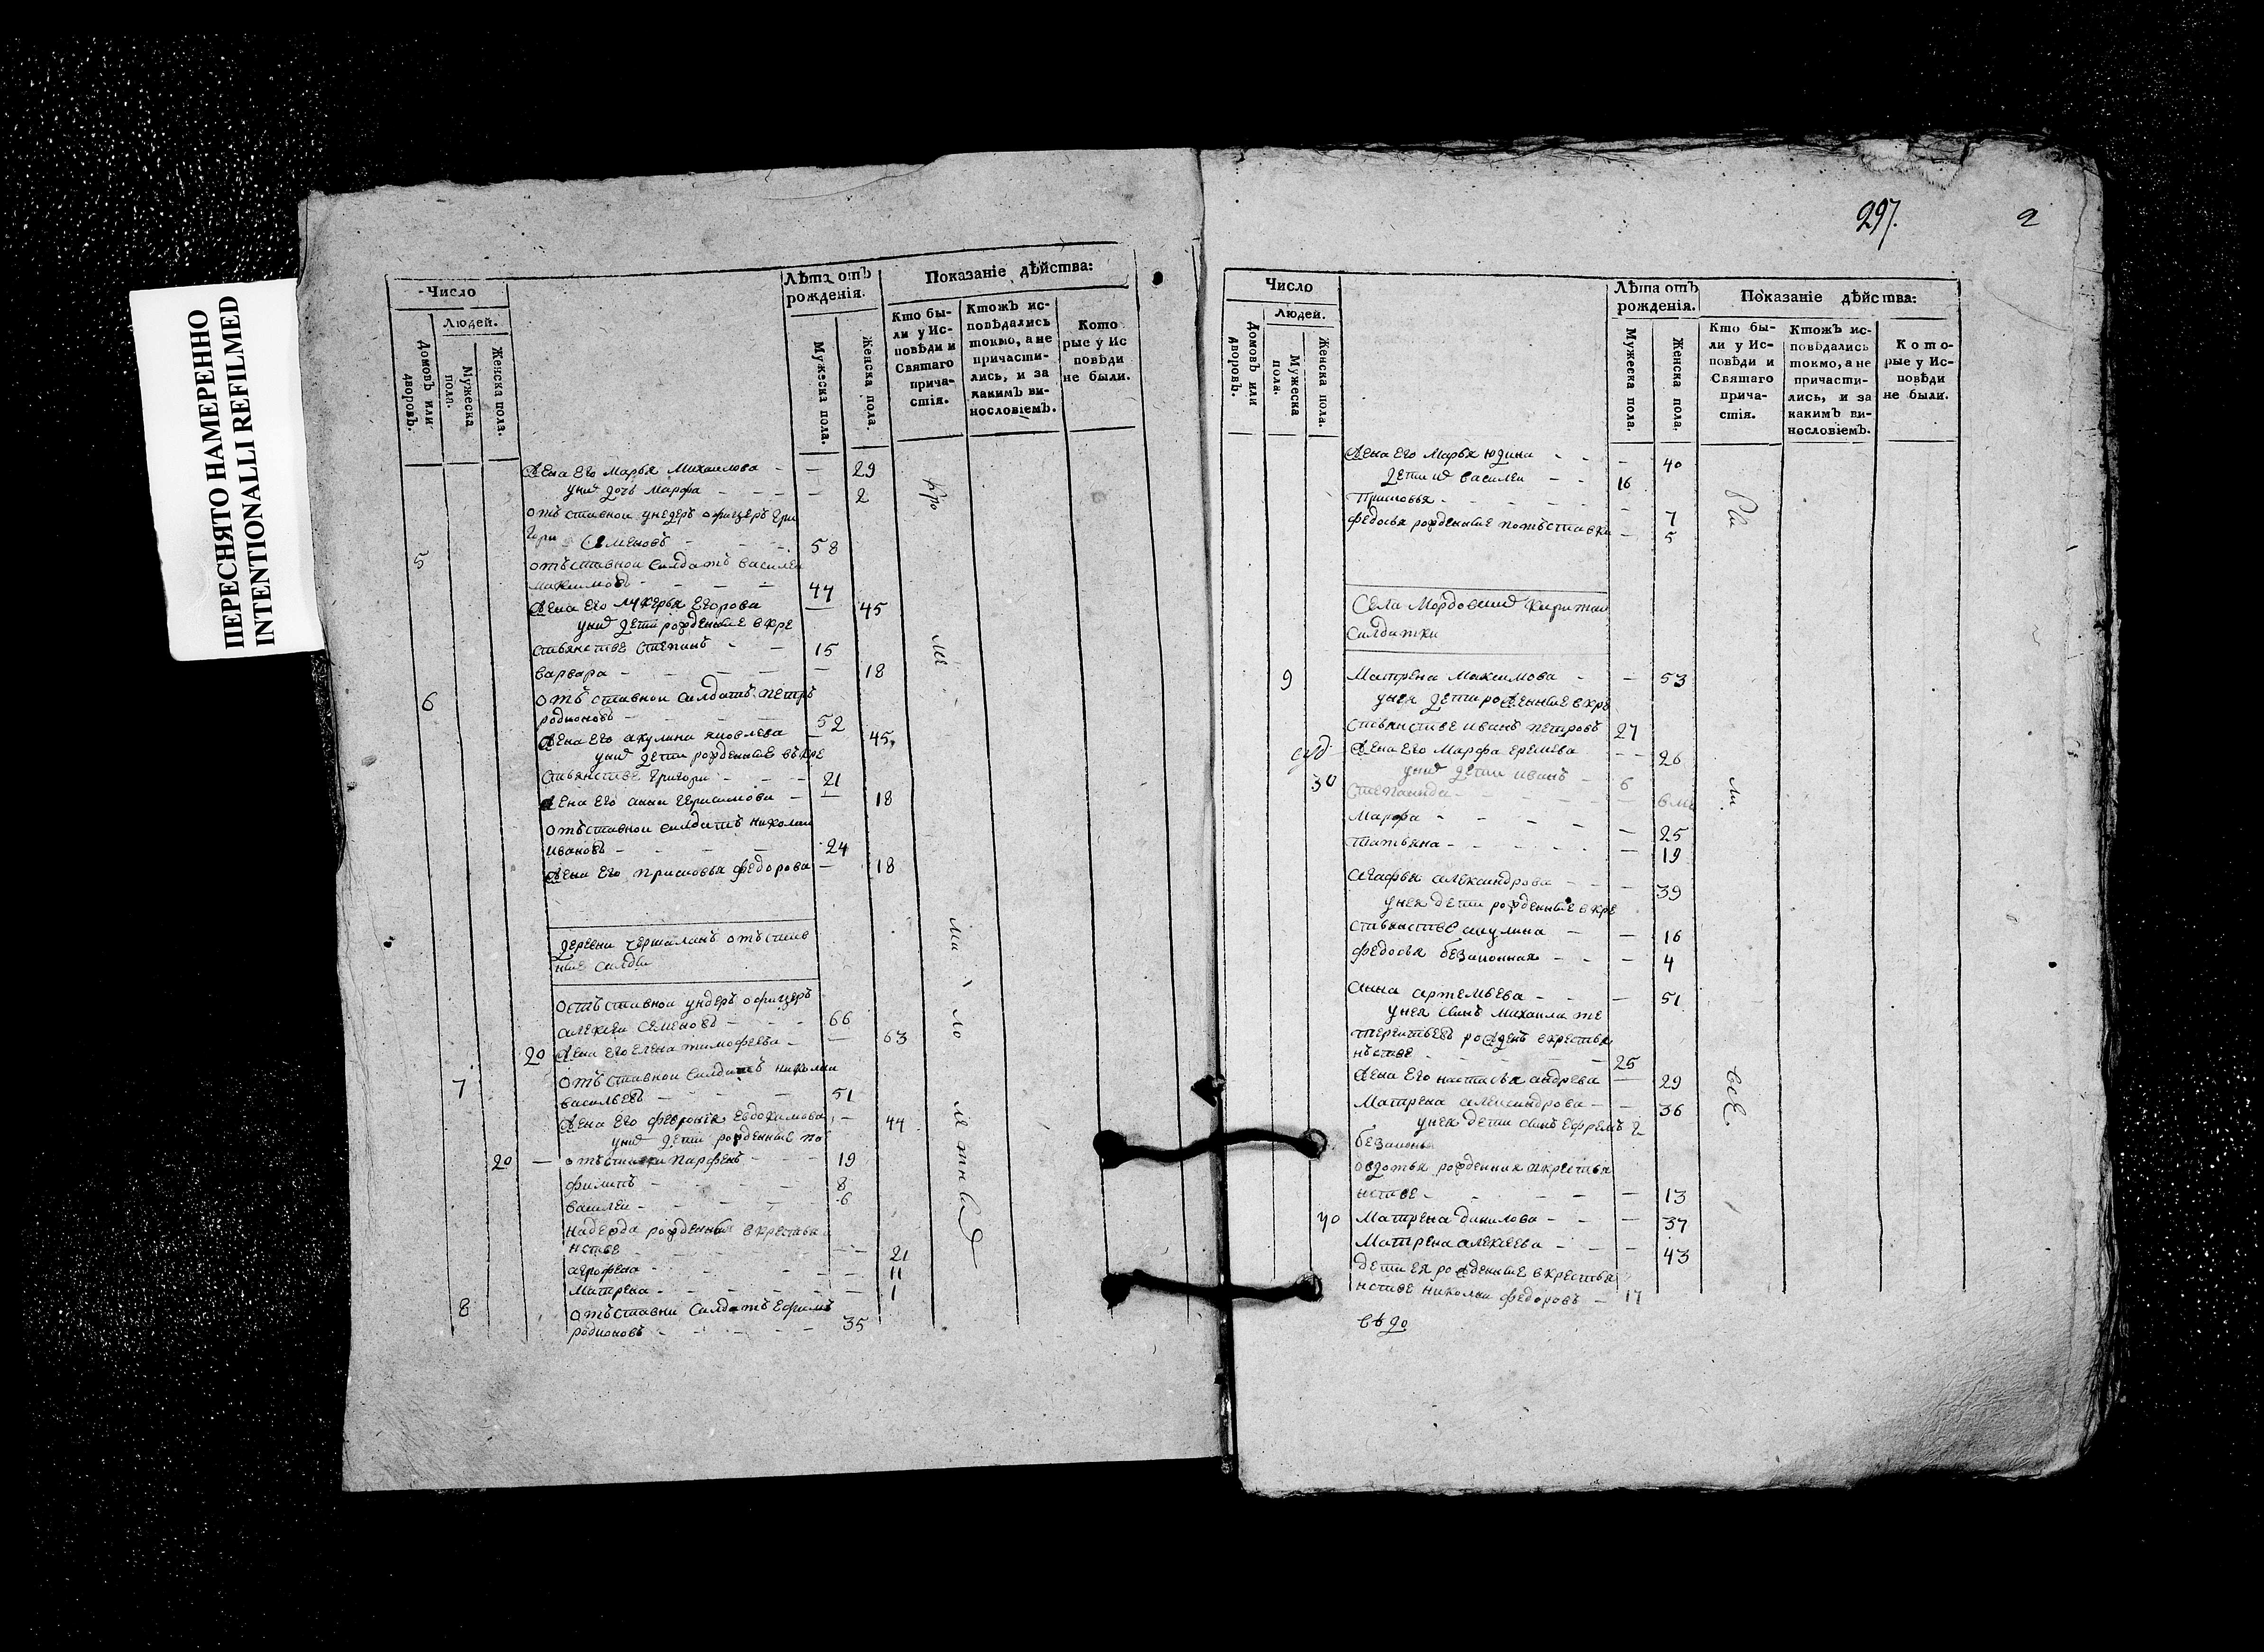 ПЕРЕСНЯТО НАМЕРЕННО
INTENTIONALLI REFILMED
Число
Людей.
Домовъ или дворовъ.
Мужеска пола.
Женска пола.
Лѣта отъ
рожденія.
Мужеска пола.
Женска пола.
Показаніе дѣйства:
Кто бы-
ли у Ис-
повѣди и
Святаго
прича-
стія.
Ктожъ ис-
повѣдались
токмо, а не
причасти-
лись, и за
какимъ ви-
нословіемъ.
Кото
рые у Ис
повѣди
не были.
Жена его Марья Михаилова - — 29
у них дочь Марфа - - - — 2
отъставнои унедеръ офицеръ Гри
гори Семеновъ - - 58
5 отъставнои салдатъ василеи
максимовъ - - - 44
Жена его лукерья Егорова — 45
у них дети рожденные в кре
стьянстве степанъ - - 15
варвара - - - — 18
6 отъставнои салдатъ петръ
родионовъ - - - 52
Жена его акулина яковлева — 45
у них дети рожденные въ кре
стьянстве григори - - - 21
Жена его анна герасимова - — 18
отъставнои салдатъ николаи
ивановъ - - - 24
Жена его прасковья федорова — 18
деревни чергаланъ отъстав
ные салды
отъставнои ундеръ офицеръ
алексеи семеновъ - - - 66
20 Жена его елена тимофеева - — 63
7 отъставнои салдатъ николаи
васильевъ - - - 51
Жена его феврония евдокимова — 44
у них дети рожденные по
20 — отъставки парфенъ - - - 19
филипъ - - - - 8
василеи - - - - 6
надежда рожденная в крестья
нстве - - - - 21
агрофена - - - - — 11
матрена - - - - — 1
8 отъставни салдатъ ефимъ
родионовъ - - - - 35
297.
2
Число
Людей.
Домовъ или дворовъ.
Мужеска пола.
Женска пола.
Лѣта отъ
рожденія.
Мужеска пола.
Женска пола.
Показаніе дѣйства:
Кто бы-
ли у Ис-
повѣди и
Святаго
прича-
стія.
Ктожъ ис-
повѣдались
токмо, а не
причасти-
лись, и за
какимъ ви-
нословіемъ.
Кото-
рые у Ис-
повѣди
не были.
Жена его Марья юдина - - - 40
дети их василеи - - 16
Присковья - - - - 7
федосья рожденные по отъставки — 5
Села Мордовских Каратаи
салдатки
9 Матрена Максимова - — 53
у нея дети рожденные в кре
стьянстве иванъ петровъ 27
Жена его Марфа еремеева - - 26
30 у них дети иванъ - 6
степанида - - — 6 ме
Марфа - - - - — 25
татьяна - - - - — 19
агафья александрова - - - 39
у нея дети рожденные в кре
стьянстве акулина - — 16
федосья безаконная - - — 4
анна артемьева - - — 51
у нея сынъ михаила те
терентьевъ рожденъ в крестья
нстве - - - 25
Жена его настасья андрева — 29
Матрена александрова - - 36
у нея дети сынъ ефремъ 2
безаконы
овдотья рожденная в крестья
нстве - - - — 13
40 Матрена данилова - - — 37
Матрена алексеева - - - 43
дети ея рожденные в крестья
нстве николаи федоровъ — 17